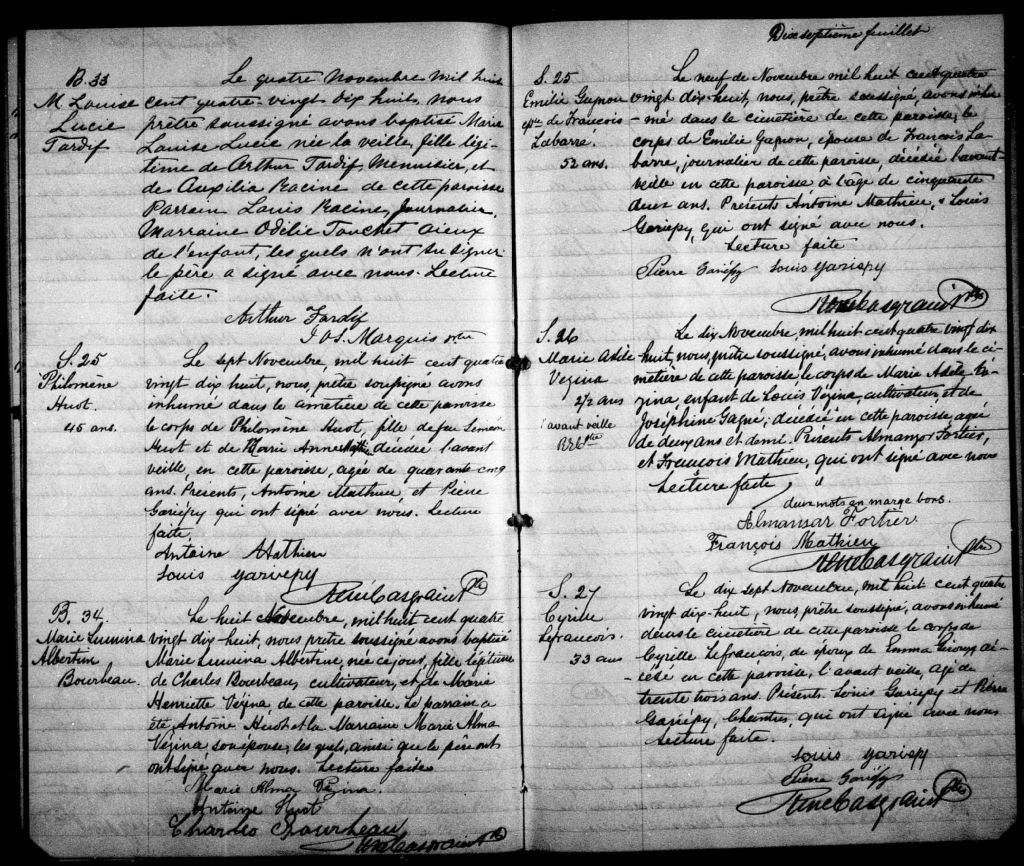 B. 33
M. Louise
Lucie
Tardif
Le quatre Novembre mil huit
cent quatre-vingt dix huit, nous
prêtre soussigné avons baptisé Marie
Louise Lucie née la veille, fille légi-
time de Arthur Tardif, Menuisier, et
de Auxilia Racine de cette paroisse
Parrain Louis Racine, Journalier,
Marraine Odélie Touchet aieux
de l'enfant, les quels n'ont su signer
le père a signé avec nous. Lecture
faite.
Arthur Tardif
Jos. Marquis ptre
S. 25
Philomène
Huot.
45 ans.
Le sept Novembre, mil huit cent quatre
vingt dix huit, nous, prêtre soussigné avons
inhumé dans le cimetière de cette paroisse
le corps de Philomène Huot, fille de feu Siméon
Huot et de Marie Anne décédée l'avant
veille, en cette paroisse, agée de quarante cinq
ans. Présents, Antoine Mathieu, et Pierre
Gariépy qui ont signé avec nous. Lecture
faite.
Antoine Mathieu
Louis Gariepy
René Casgrain Ptre
B. 34.
Marie Lumina
Albertine
Bourbeau.
Le huit Novembre, mil huit cent quatre
vingt dix-huit, nous prêtre soussigné avons baptisé
Marie Lumina Albertine, née ce jour, fille légitime
de Charles Bourbeau, cultivateur, et de Marie
Henriette Vézina, de cette paroisse. Le parrain a
été Antoine Huot et la Marraine Marie Alma
Vézina son épouse, les quels, ainsi que le père ont
ont signé avec nous. Lecture faite
Marie Alma Vézina.
Antoine Huot
Charles Bourbeau
René Casgrain Ptre
Dix septième feuillet
S. 25
Emilie Gagnon
épse de Francois
Labarre.
52 ans.
Le neuf de Novembre mil huit cent quatre
vingt dix-huit, nous, prêtre soussigné, avons inhu-
mé dans le cimetière de cette paroisse, le
corps de Emilie Gagnon, épouse de François La-
barre, journalier de cette paroisse, décédée l'avant
veille en cette paroisse à l'âge de cinquante
deux ans. Présents Antoine Mathieu, & Louis
Gariépy, qui ont signé avec nous.
Lecture faite
Pierre Gariépy Louis Gariepy
René Casgrain Ptre
S. 26
Marie Adèle
Vézina
2 1/2 ans
l'avant veille
Le dix Novembre, mil huit cent quatre vingt dix
huit, nous, prêtre soussigné, avons inhumé dans le ci-
metière de cette paroisse, le corps de Marie Adèle Vé-
zina, enfant de Louis Vézina, cultivateur, et de
Joséphine Gagné; décédée en cette paroisse, agée
de deux ans et demi. Présents Almanzor Fortier,
et François Mathieu, qui ont signé avec nous
Lecture faite
deux mots en marge bons.
Almansar Fortier
François Mathieu
René Casgrain Ptre
S. 27
Cyrille
Lefrancois.
33 ans
Le dix sept Novembre, mil huit cent quatre
vingt dix-huit, nous, prêtre soussigné, avons inhumé
dans le cimetière de cette paroisse le corps de
Cyrille Lefrancois, époux de Emma Giroux dé-
cédé en cette paroisse, l'avant veille, agé de
trente trois ans. Présents Louis Gariepy et Pierre
Gariépy, Chantres, qui ont signé avec nous
Lecture faite.
Louis Gariepy
Pierre Gariépy
René Casgrain Ptre